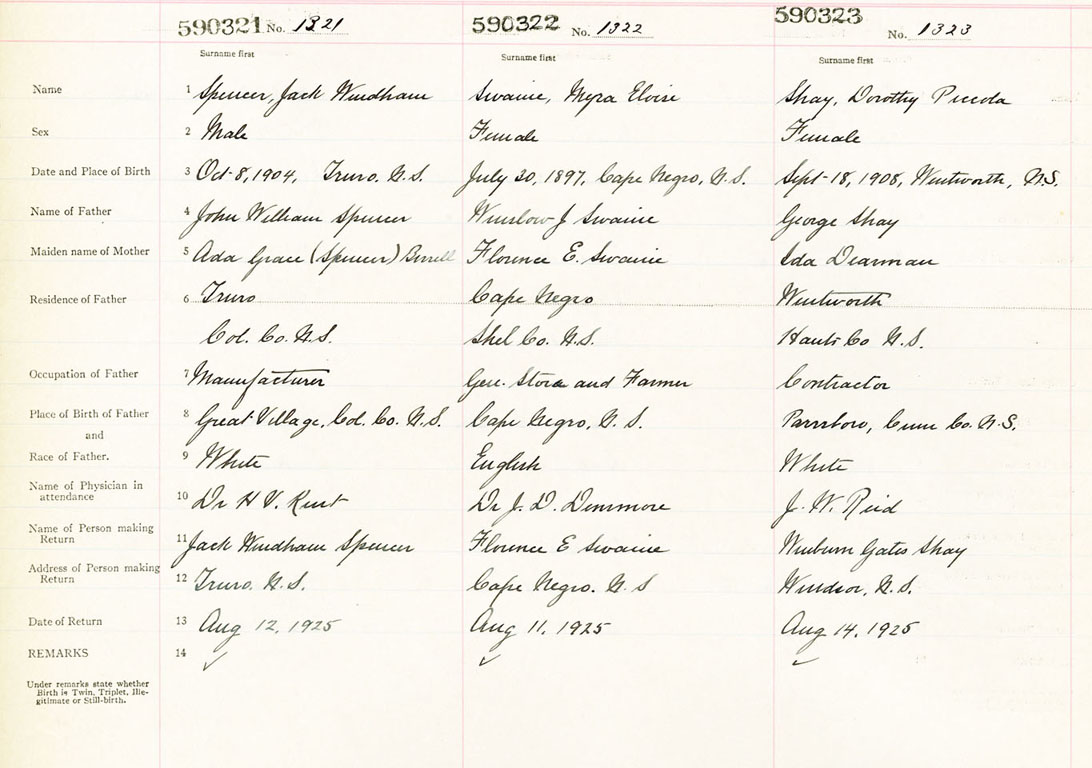 590321 No. 1321
Surname first
590322 No. 1322
Surname first
590323 No. 1323
Surname first
Name 1 Spencer, Jack Windham Swaine, Myra Eloise Shay, Dorothy Piccola
Sex 2 Male Female Female
Date and Place of Birth 3 Oct 8, 1904, Truro, N.S. July 30, 1897, Cape Negro, N.S. Sept 18, 1908, Wentworth, N.S.
Name of Father 4 John William Spencer Winslow J Swaine George Shay
Maiden name of Mother 5 Ada Grace (Spencer) Florence E. Swaine Ida Dearman
Residence of Father 6 Truro Cape Negro Wentworth
Col. Co. N.S. Shel Co. N.S. Hants Co N.S.
Occupation of Father 7 Manufacturer Gen. Store and Farmer Contractor
Place of Birth of Father 8 Great Village, Col. Co. N.S. Cape Negro, N.S. Parrsboro, Cum Co. N.S.
and
Race of Father. 9 White English White
Name of Physician in
attendance 10 Dr H V. Kent Dr J. D. Densmore J. W. Reid
Name of Person making
Return 11 Jack Windham Spencer Florence E Swaine Winburn Gates Shay
Address of Person making
Return 12 Truro, N.S. Cape Negro. N.S Windsor, N.S.
Date of Return 13 Aug 12, 1925 Aug 11, 1925 Aug 14, 1925
REMARKS 14 ✓ ✓ ✓
Under remarks state whether
Birth is Twin, Triplet, Ille-
gitimate or Still-birth.